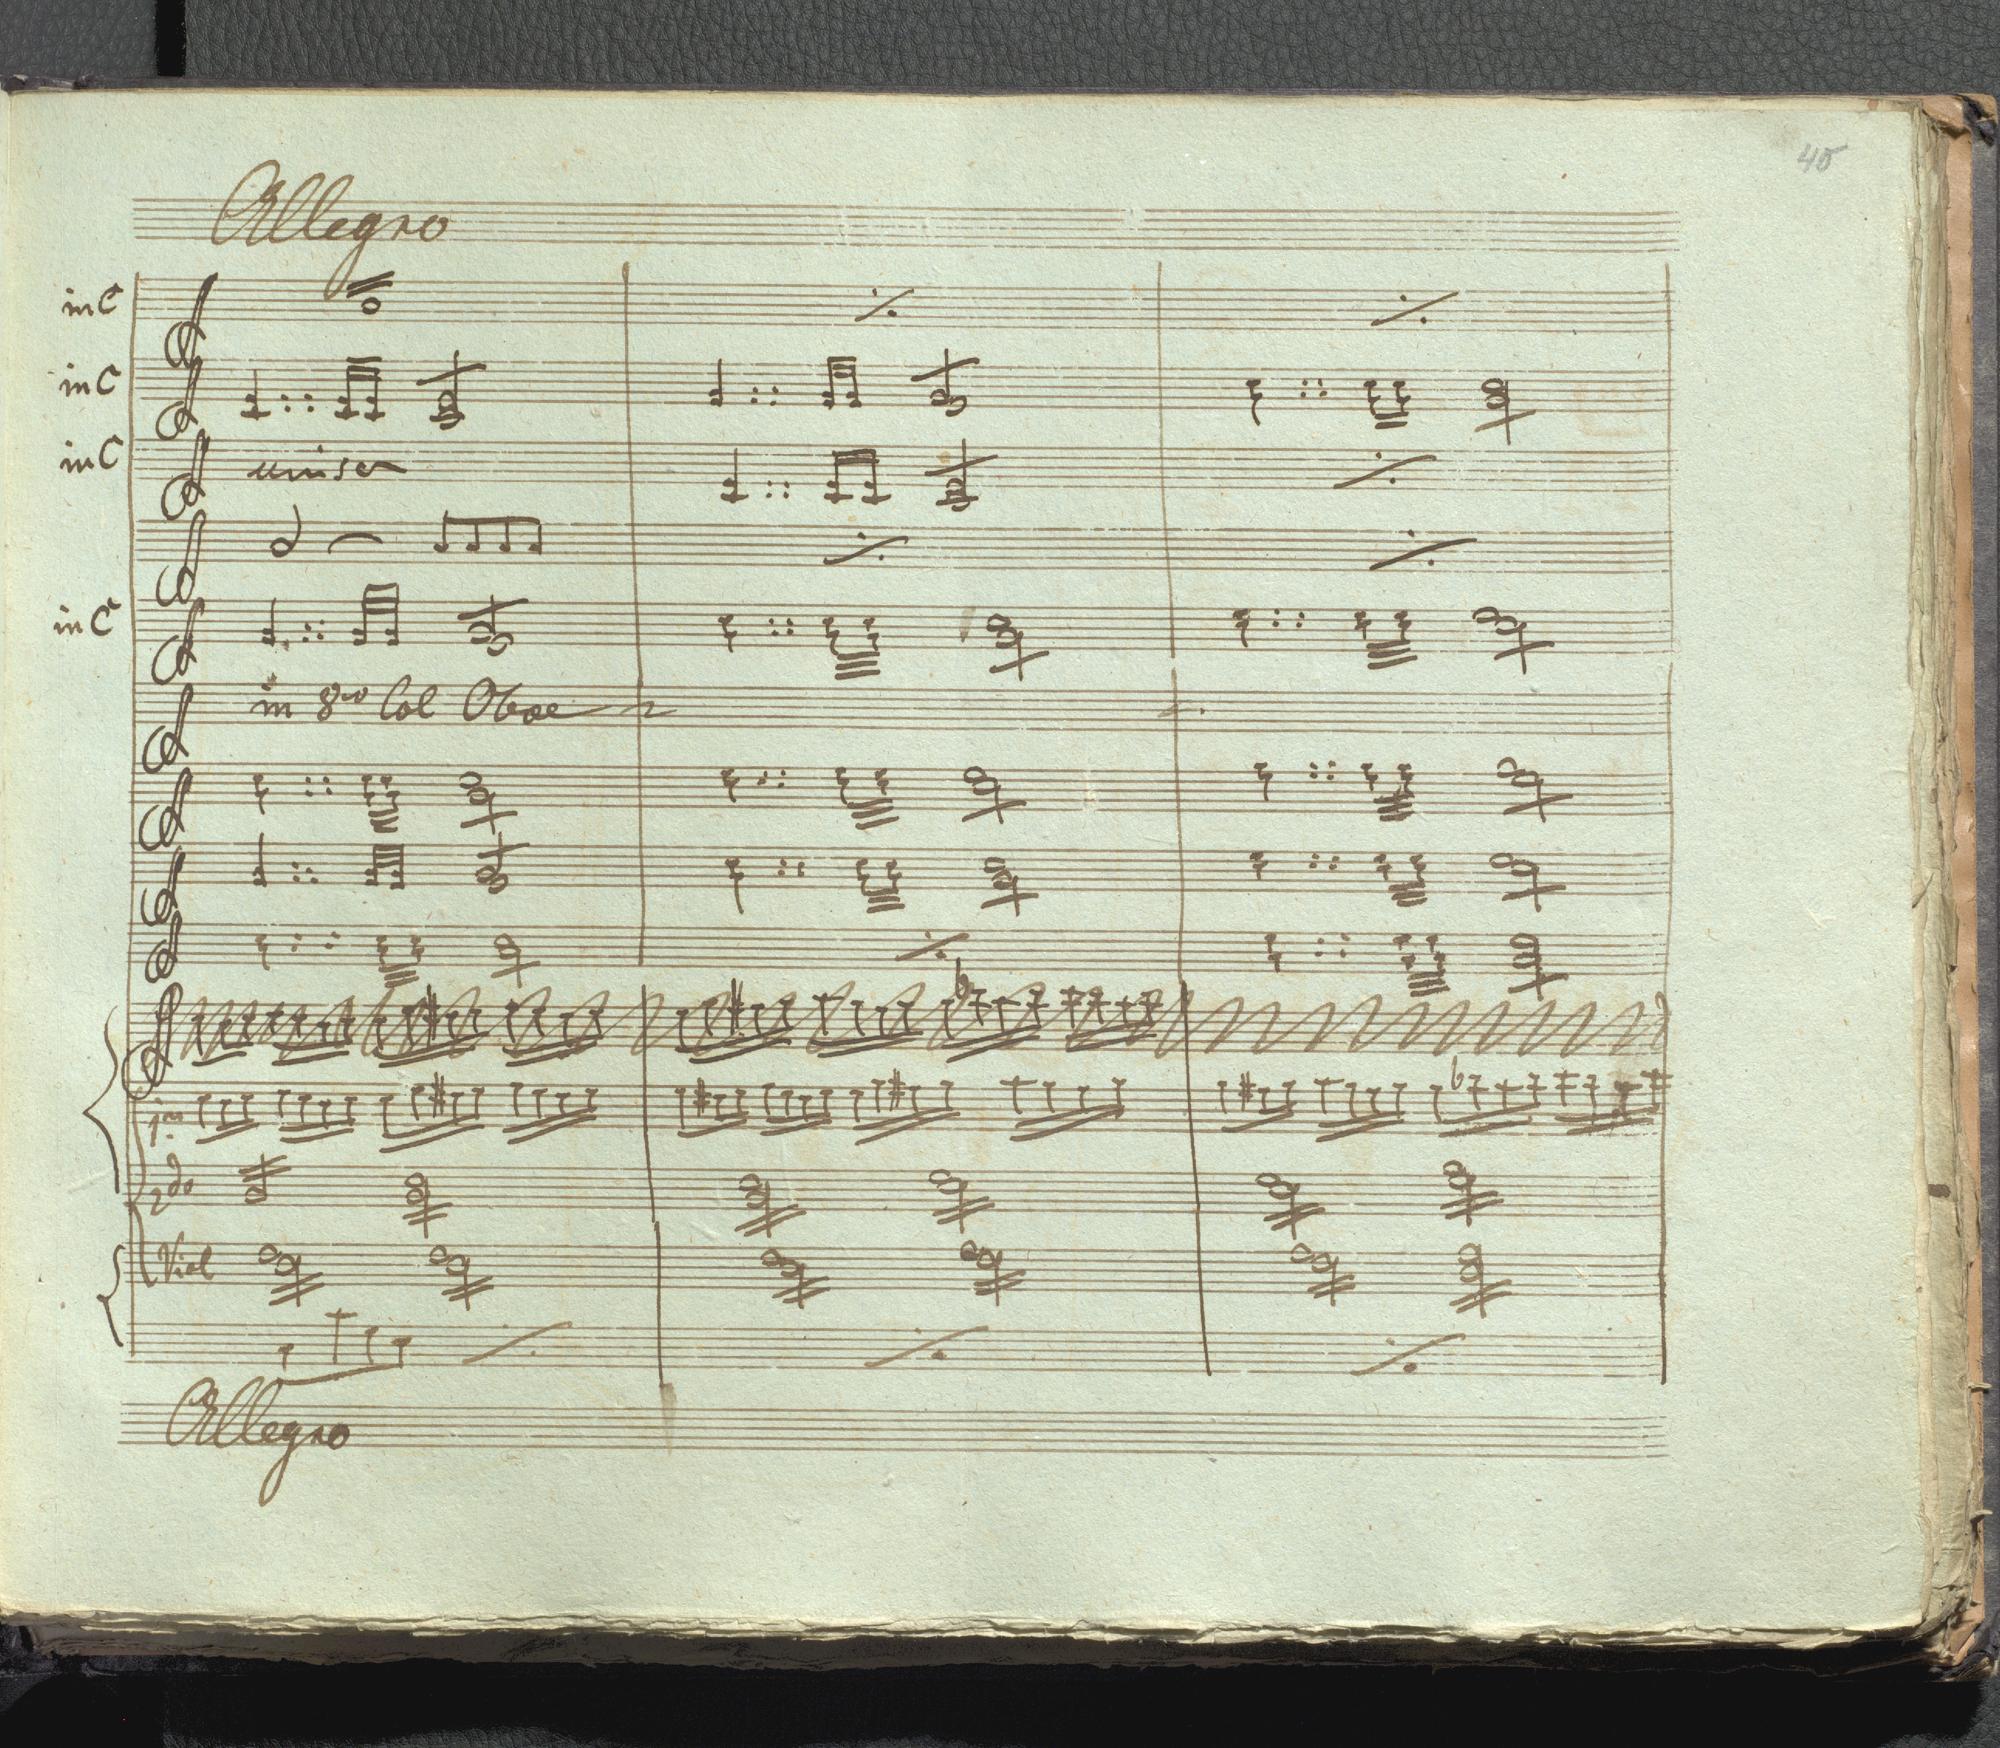 45
Allegro
in C
in C
in C
uniso
in C
in 8vo Col Oboe
1mo
2do
Viol
Allegro